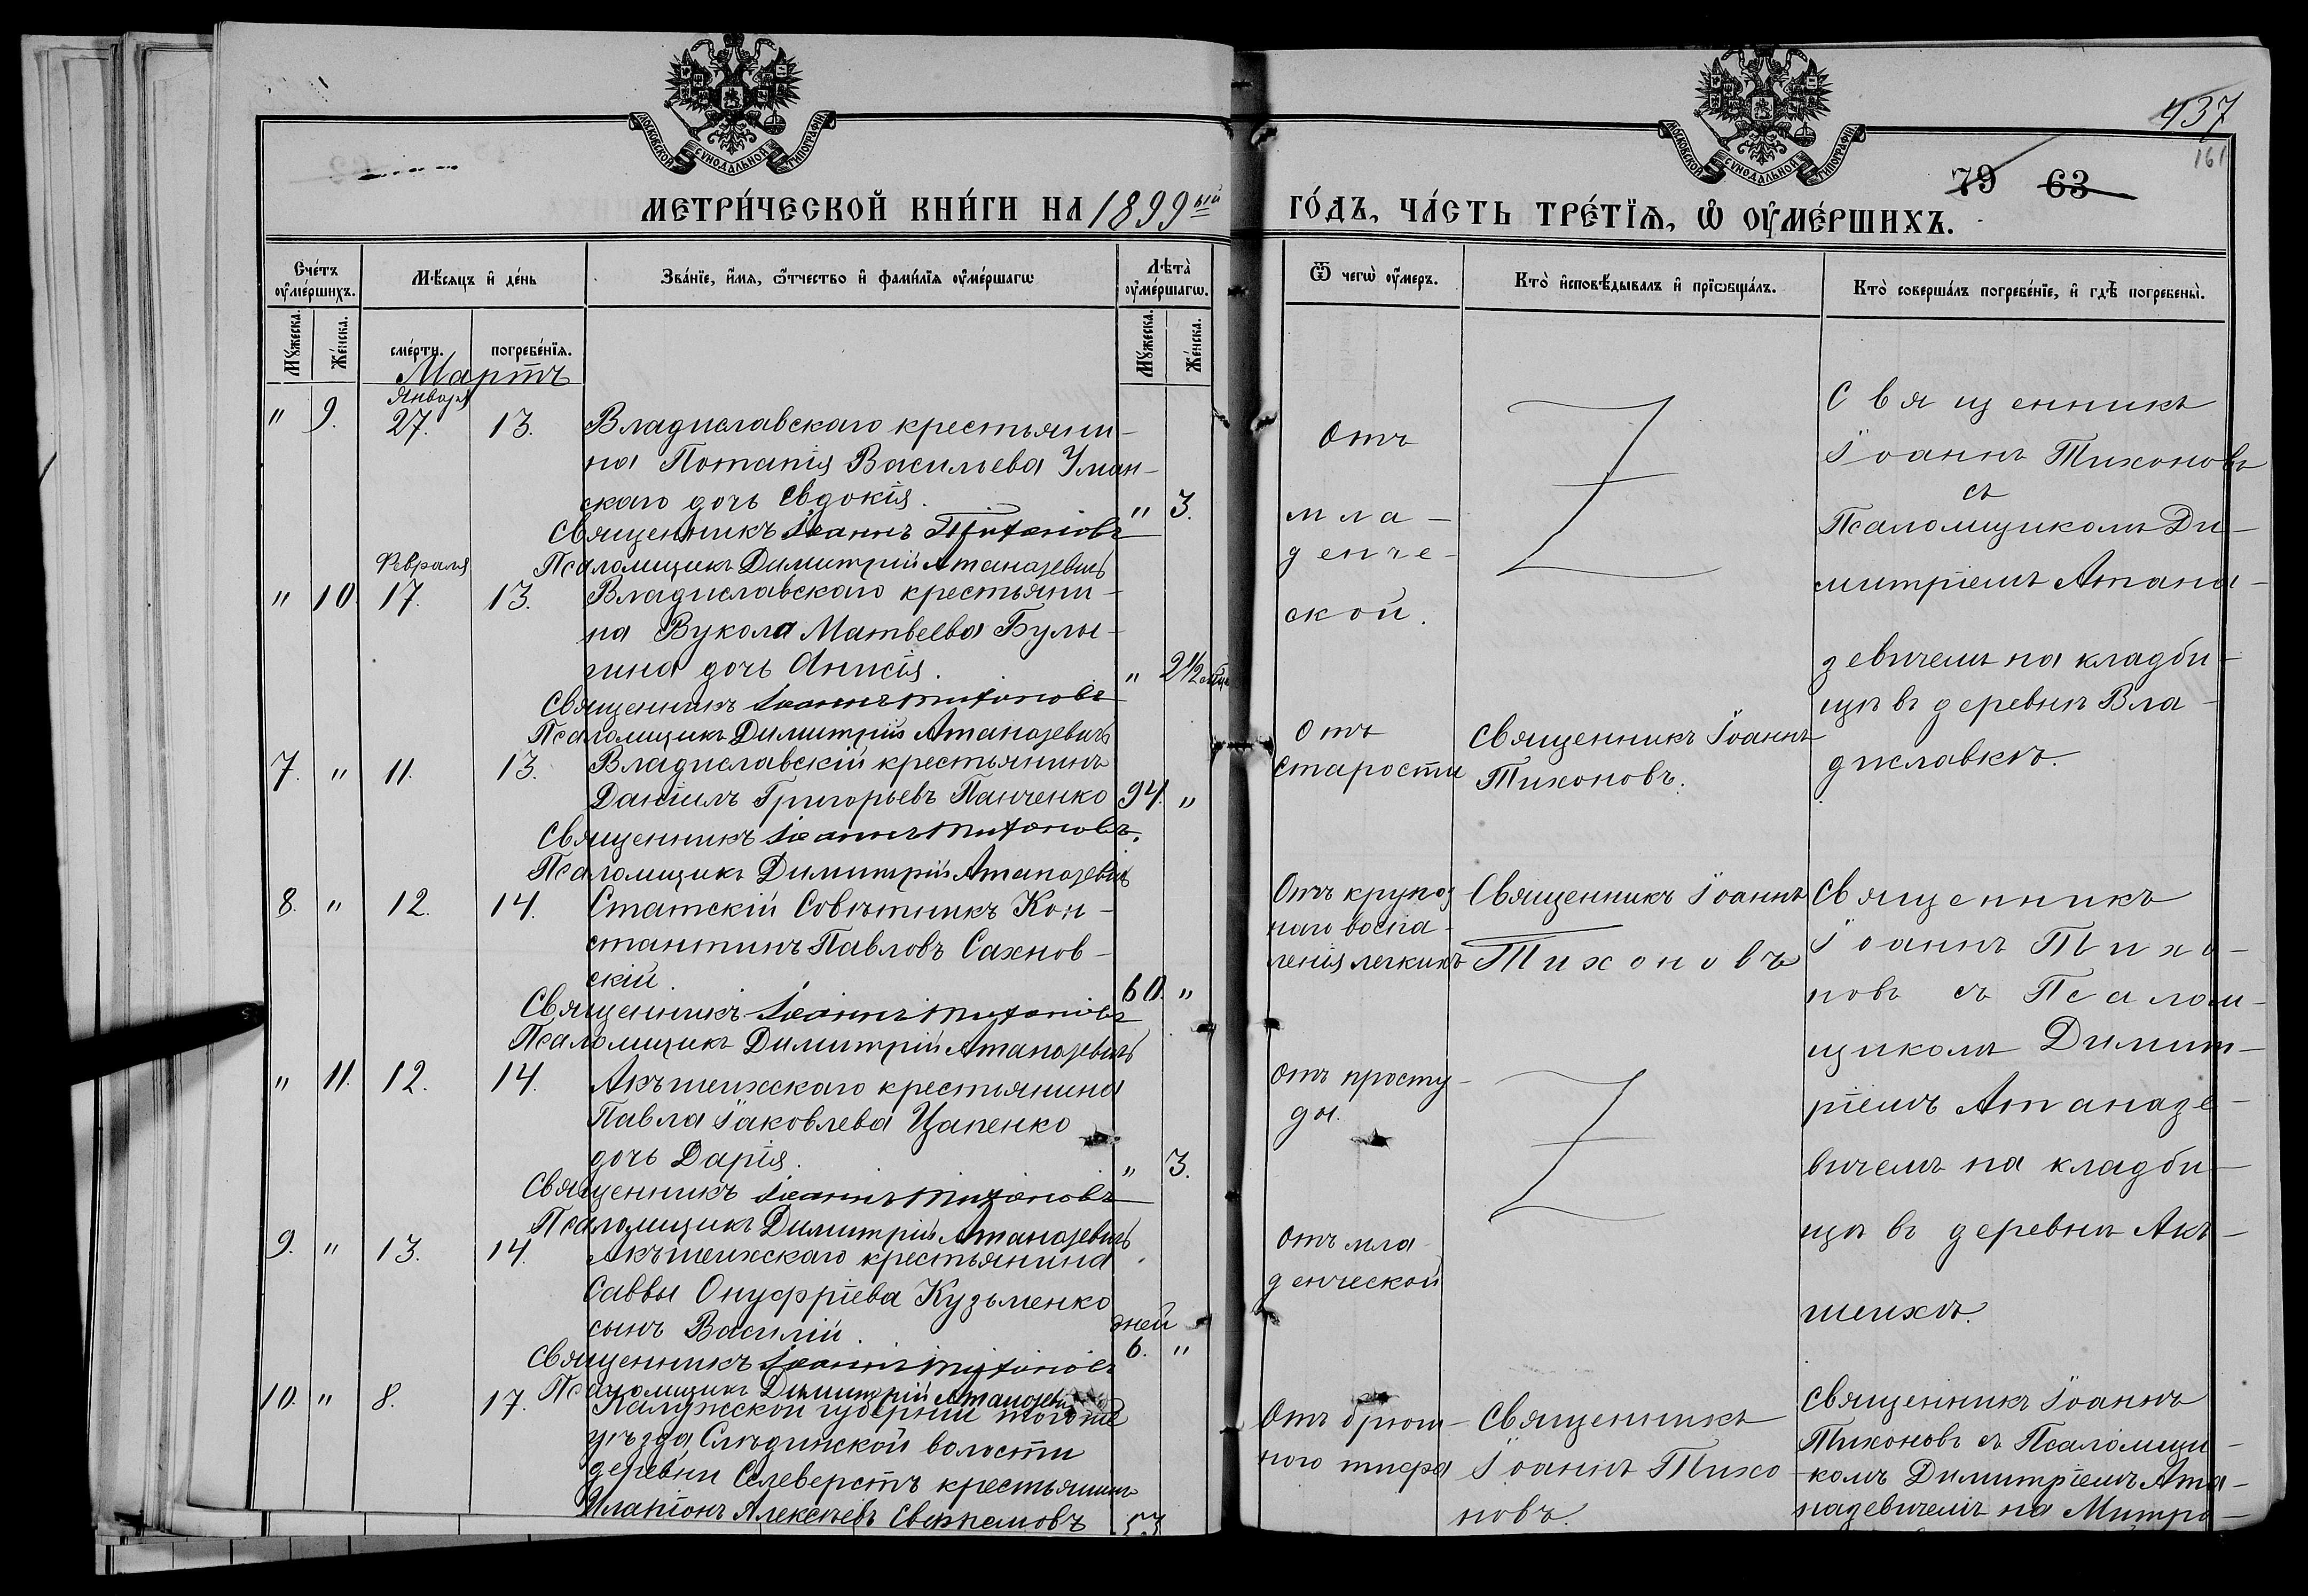 МОСКОВСКОЙ СѴНОДАЛЬНОЙ ТИПОГРАФІИ
МОСКОВСКОЙ СѴНОДАЛЬНОЙ ТИПОГРАФІИ
437
161
79 63
МЕТРИ́ЧЕСКОЙ КНИ́ГИ НА 1899ый
ГО́ДЪ, ЧА́СТЬ ТРЕ́ТІѦ, Ѡ҆ ОУ҆МЕ́РШИХЪ.
Сче́тъ оу҆ме́ршихъ.
Мѣ́сяцъ и҆ де́нь
Зва́ніе, и҆́мя, ѻ҆́тчество и҆ фами́лія оу҆ме́ршагѡ
Лѣта̀ оу҆ме́ршагѡ.
Ѿ чегѡ̀ оу҆́меръ.
Кто̀ и҆сповѣ́дывалъ и҆ прїѡбща́лъ.
Кто̀ соверша́лъ погребе́ніе, и҆ гдѣ̀ погребены̀.
Мꙋ́жеска.
Же́нска.
сме́рти.
погребе́нїѧ.
Мꙋ́жеска.
Же́нска.
Мартъ
Января
" 9. 27. 13. Владиславскаго крестьяни-
на Потапія Васильева Уман-
скаго дочь Евдокія. " 3.
Священникъ Іоаннъ Тихоновъ
Псаломщикъ Димитрій Атаназевичъ
Отъ
мла-
денче-
ской.
Священникъ
Іоаннъ Тихоновъ
съ
Псаломщикомъ Ди-
митріемъ Атана-
зевичемъ на кладби-
щѣ въ деревнѣ Вла-
диславкѣ.
Февраля
" 10. 17. 13. Владиславскаго крестьяни-
на Вукола Матвѣева Булы-
гина дочь Анисія. " 2 1/2 мѣс
Священникъ Іоаннъ Тихоновъ
Псаломщикъ Димитрій Атаназевичъ
7. " 11. 13. Владиславскій крестьянинъ
Даніилъ Григорьевъ Панченко 94. "
Священникъ Іоаннъ Тихоновъ.
Псаломщикъ Димитрій Атаназевичъ
Отъ
старости
Священникъ Іоаннъ
Тихоновъ.
8. " 12. 14. Статскій Совѣтникъ Кон-
стантинъ Павловъ Сахнов-
скій. 60. "
Священникъ Іоаннъ Тихоновъ
Псаломщикъ Димитрій Атаназевичъ
Отъ крупоз
наго воспа-
ленія легкихъ
Священникъ Іоаннъ
Тихоновъ
Священникъ
Іоаннъ Тихо-
новъ съ Псалом-
щикомъ Димит-
ріемъ Атаназе-
вичемъ на кладби-
щѣ въ деревнѣ Акъ-
шеихѣ.
" 11. 12. 14. Акъшеихскаго крестьянина
Павла Іаковлева Цапенко
дочь Дарія. " 3.
Священникъ Іоаннъ Тихоновъ
Псаломщикъ Димитрій Атаназевичъ
Отъ просту-
ды.
9. " 13. 14. Акъшеихскаго крестьянина
Саввы Онуфріева Кузьменко
сынъ Василій. дней 6. "
Священникъ Іоаннъ Тихоновъ
Псаломщикъ Димитрій Атаназевичъ
Отъ мла
денческой
10. " 8. 17. Калужской губерніи того же
уѣзда, волости
деревни Селеверстъ крестьянинъ
Иларіонъ Алексѣевъ 53
Отъ брюш-
ного тифа
Священникъ
Іоаннъ Тихо-
новъ.
Священникъ Іоаннъ
Тихоновъ съ Псаломщи-
комъ Димитріемъ Ата-
назевичемъ на Митро-